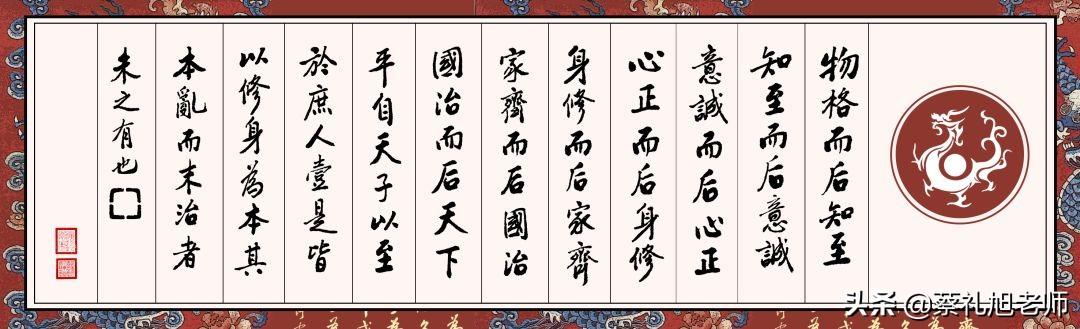 物格而后知至
知至而后意誠
意誠而后心正
心正而后身修
身修而后家齊
家齊而后國治
國治而后天下
平自天子以至
於庶人壹是皆
以修身為本其
本亂而末治者
未之有也
头条@蔡礼旭老师